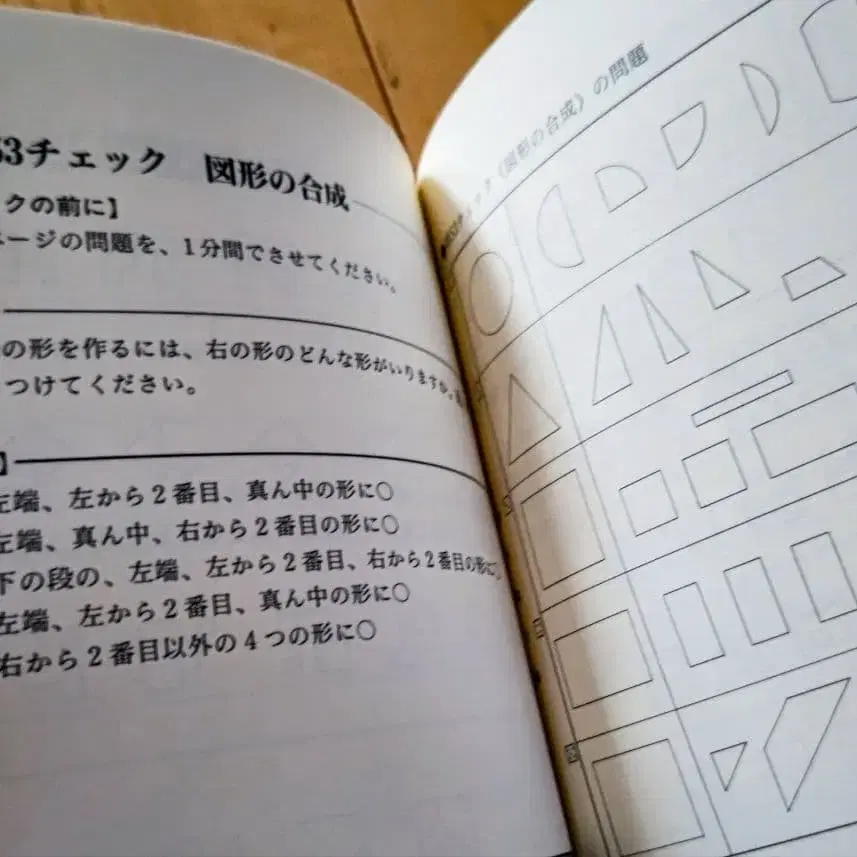 53チェック 図形の合成
クの前に】
ページの問題を、1分間でさせてください。
の形を作るには、右の形のどんな形がいりますか。
つけてください。
】
左端、左から2番目、真ん中の形に○
左端、真ん中、右から2番目の形に○
下の段の、左端、左から2番目、右から2番目の形に
左端、左から2番目、真ん中の形に○
右から2番目以外の4つの形に○
チェック《図形の合成》の問題